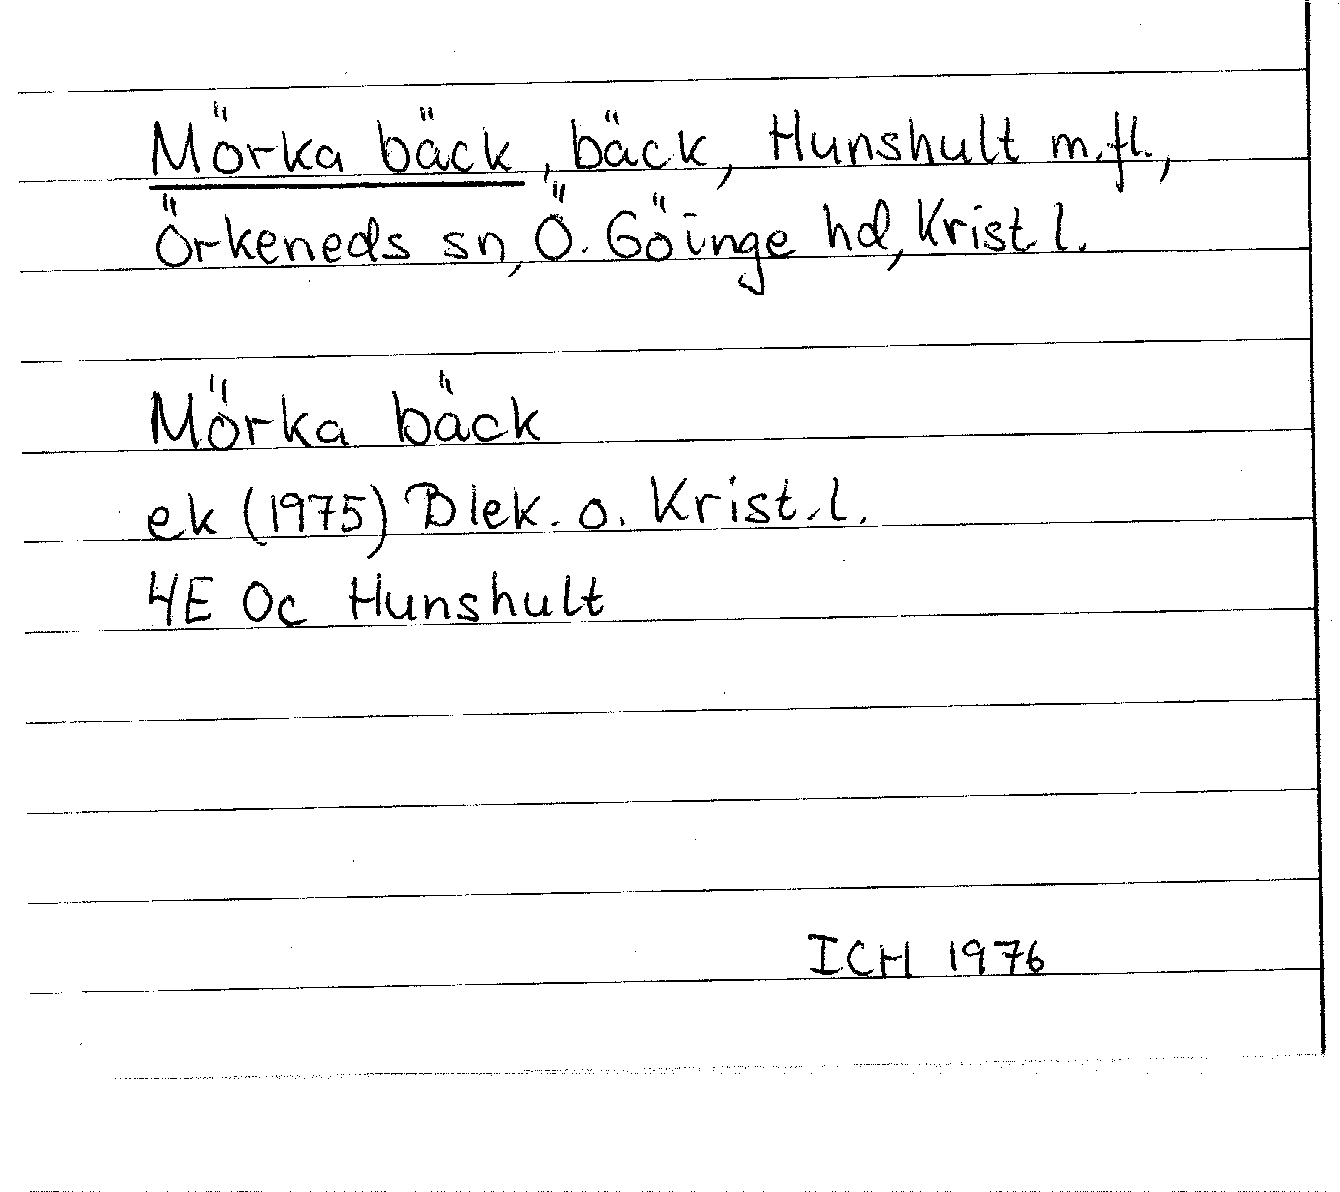 Mörka bäck, bäck, Hunshult m.fl.,
Örkeneds sn, Ö. Göinge hd, Krist l.
Mörka bäck
ek (1975) Blek. o. Krist.l.
4E 0c Hunshult
ICH 1976